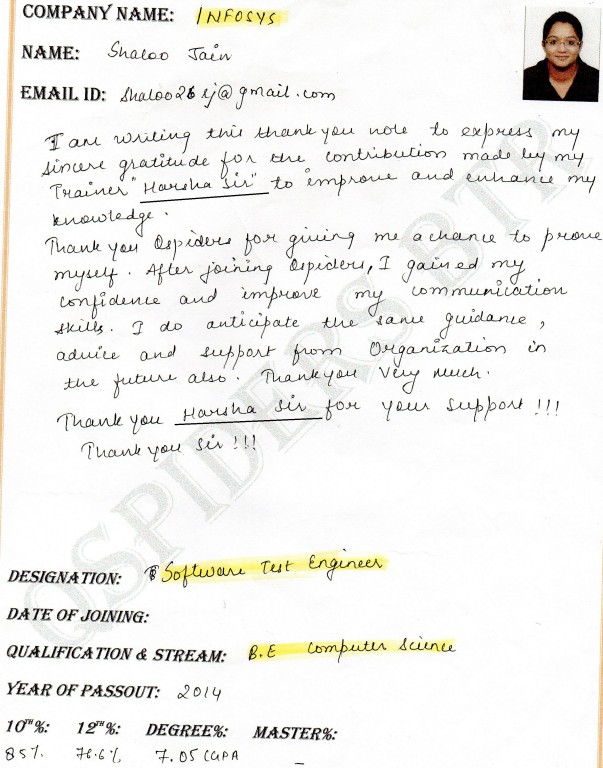 COMPANY NAME: INFOSYS
NAME: Shaloo Jain
EMAIL ID: shaloo26sj@gmail.com
I am writing this thank you note to express my
sincere gratitude for the contribution made by my
Trainer "Harsha Sir" to improve and enhance my
knowledge.
Thank you Qspiders for giving me a chance to prove
myself. After joining Qspiders, I gained my
confidence and improve my communication
skills. I do anticipate the same guidance,
advice and support from Organization in
the future also. Thank you Very much.
Thank you Harsha Sir for your support !!!
Thank you Sir !!!
QSPIDERS BTR
DESIGNATION: Software Test Engineer
DATE OF JOINING:
QUALIFICATION & STREAM: B.E Computer Science
YEAR OF PASSOUT: 2014
10TH%: 12TH%: DEGREE%: MASTER%:
85% 76.6% 7.05 CGPA –